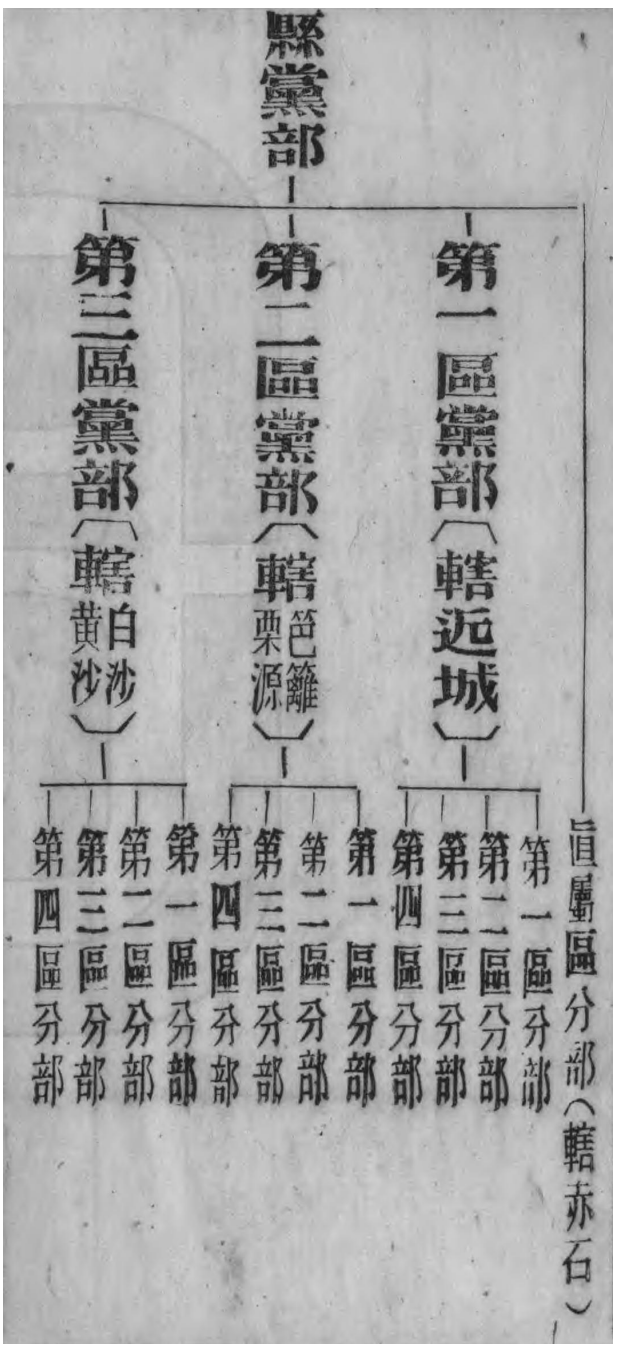 縣黨部
直屬區分部(轄赤石)
第一區黨部(轄近城)
第一區分部
第二區分部
第三區分部
第四區分部
第二區黨部(轄笆籬栗源)
第一區分部
第二區分部
第三區分部
第四區分部
第三區黨部(轄白沙黄沙)
第一區分部
第二區分部
第三區分部
第四區分部